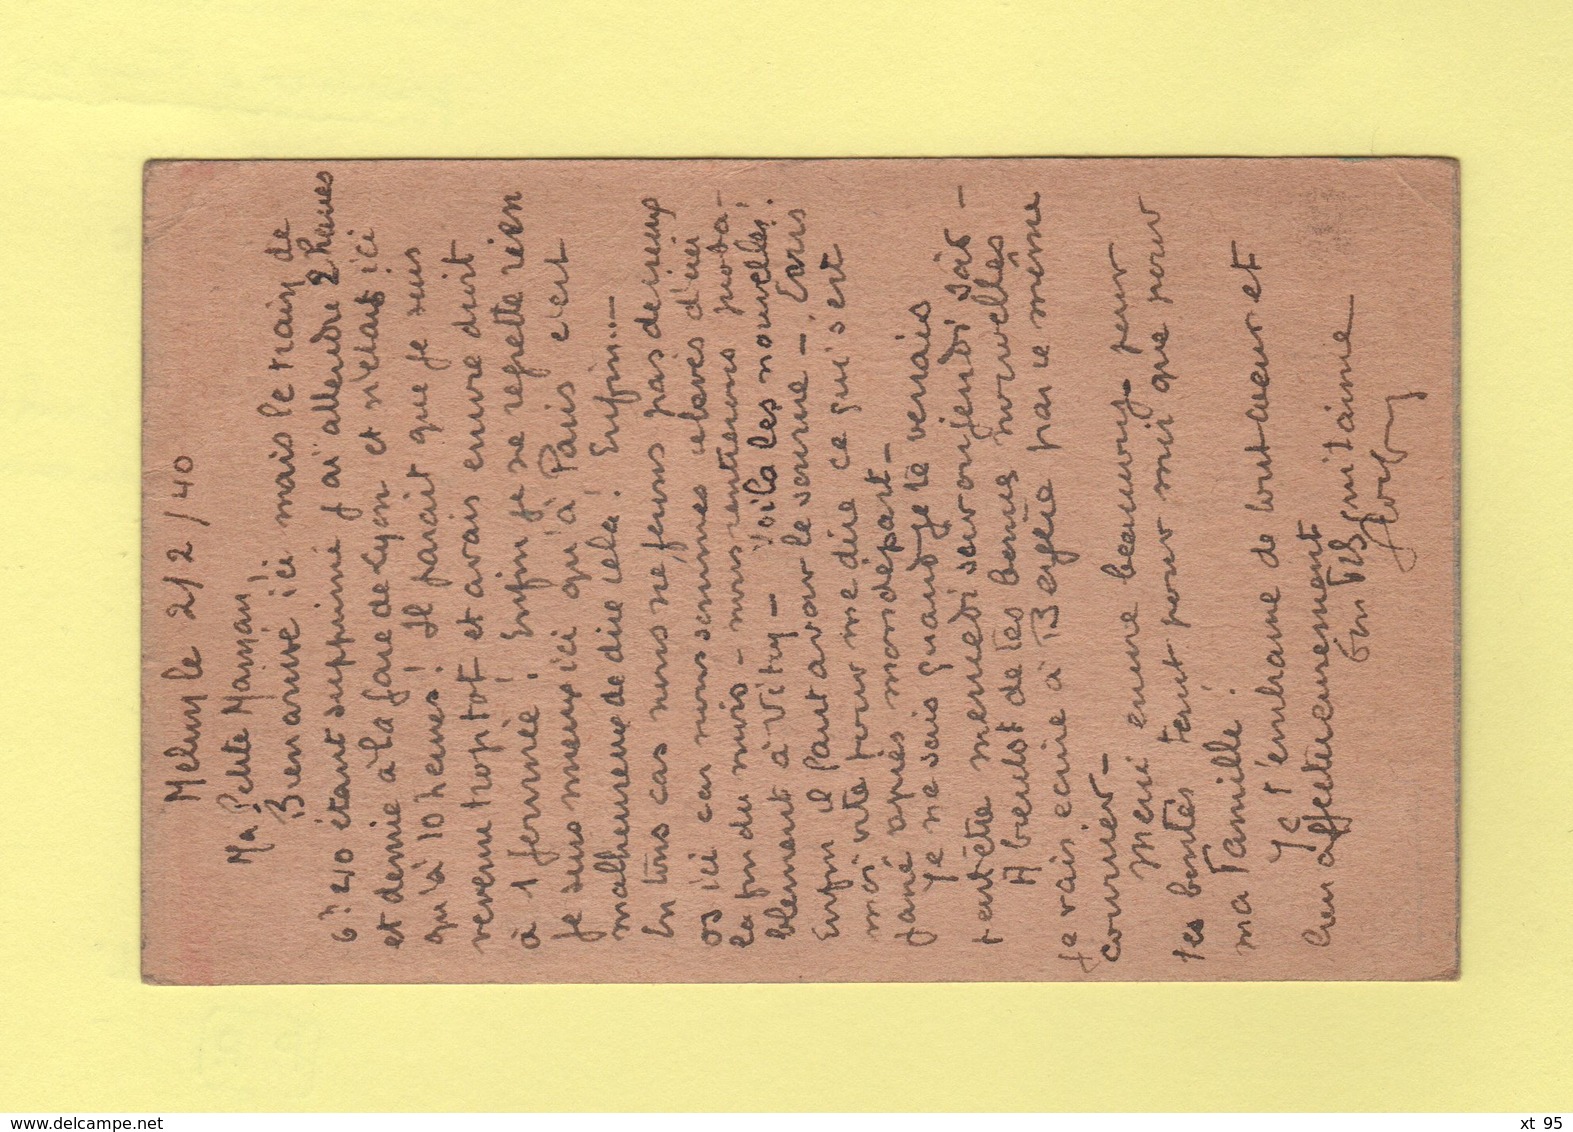 Melun le 2/2/40
Ma Petite Maman!
Bien arrivé ici mais le train de
6h 40 étant supprimé j'ai attendre 2 heures
et demie à la gare de Lyon et n'étais ici
qu'à 10 heures! Il parait que je suis
revenu trop tot et avais encore droit
à 1 journée! Enfin je ne regrette rien
je suis mieux ici qu'à Paris c'est
malheureux de dire cela! Enfin...—
En tous cas nous ne ferons pas de vieux
os ici car nous sommes élèves d'ici
la fin du mois - nous rentrerons proba-
blement à Vitry — Voila les nouvelles!
Enfin il faut avoir le sourire — Ecris
moi vite pour me dire ce qui s'est
passé après mon départ —
Je ne sais quand je te verrais
peut-être mercredi soir ou jeudi soir —
A bientot de tes bonnes nouvelles
je vais écrire à Bergère par ce même
courrier —
Merci encore beaucoup pour
tes bontés tant pour moi que pour
ma famille!
Je t'embrasse de tout coeur et
bien affectueusement
Ton fils qui t'aime